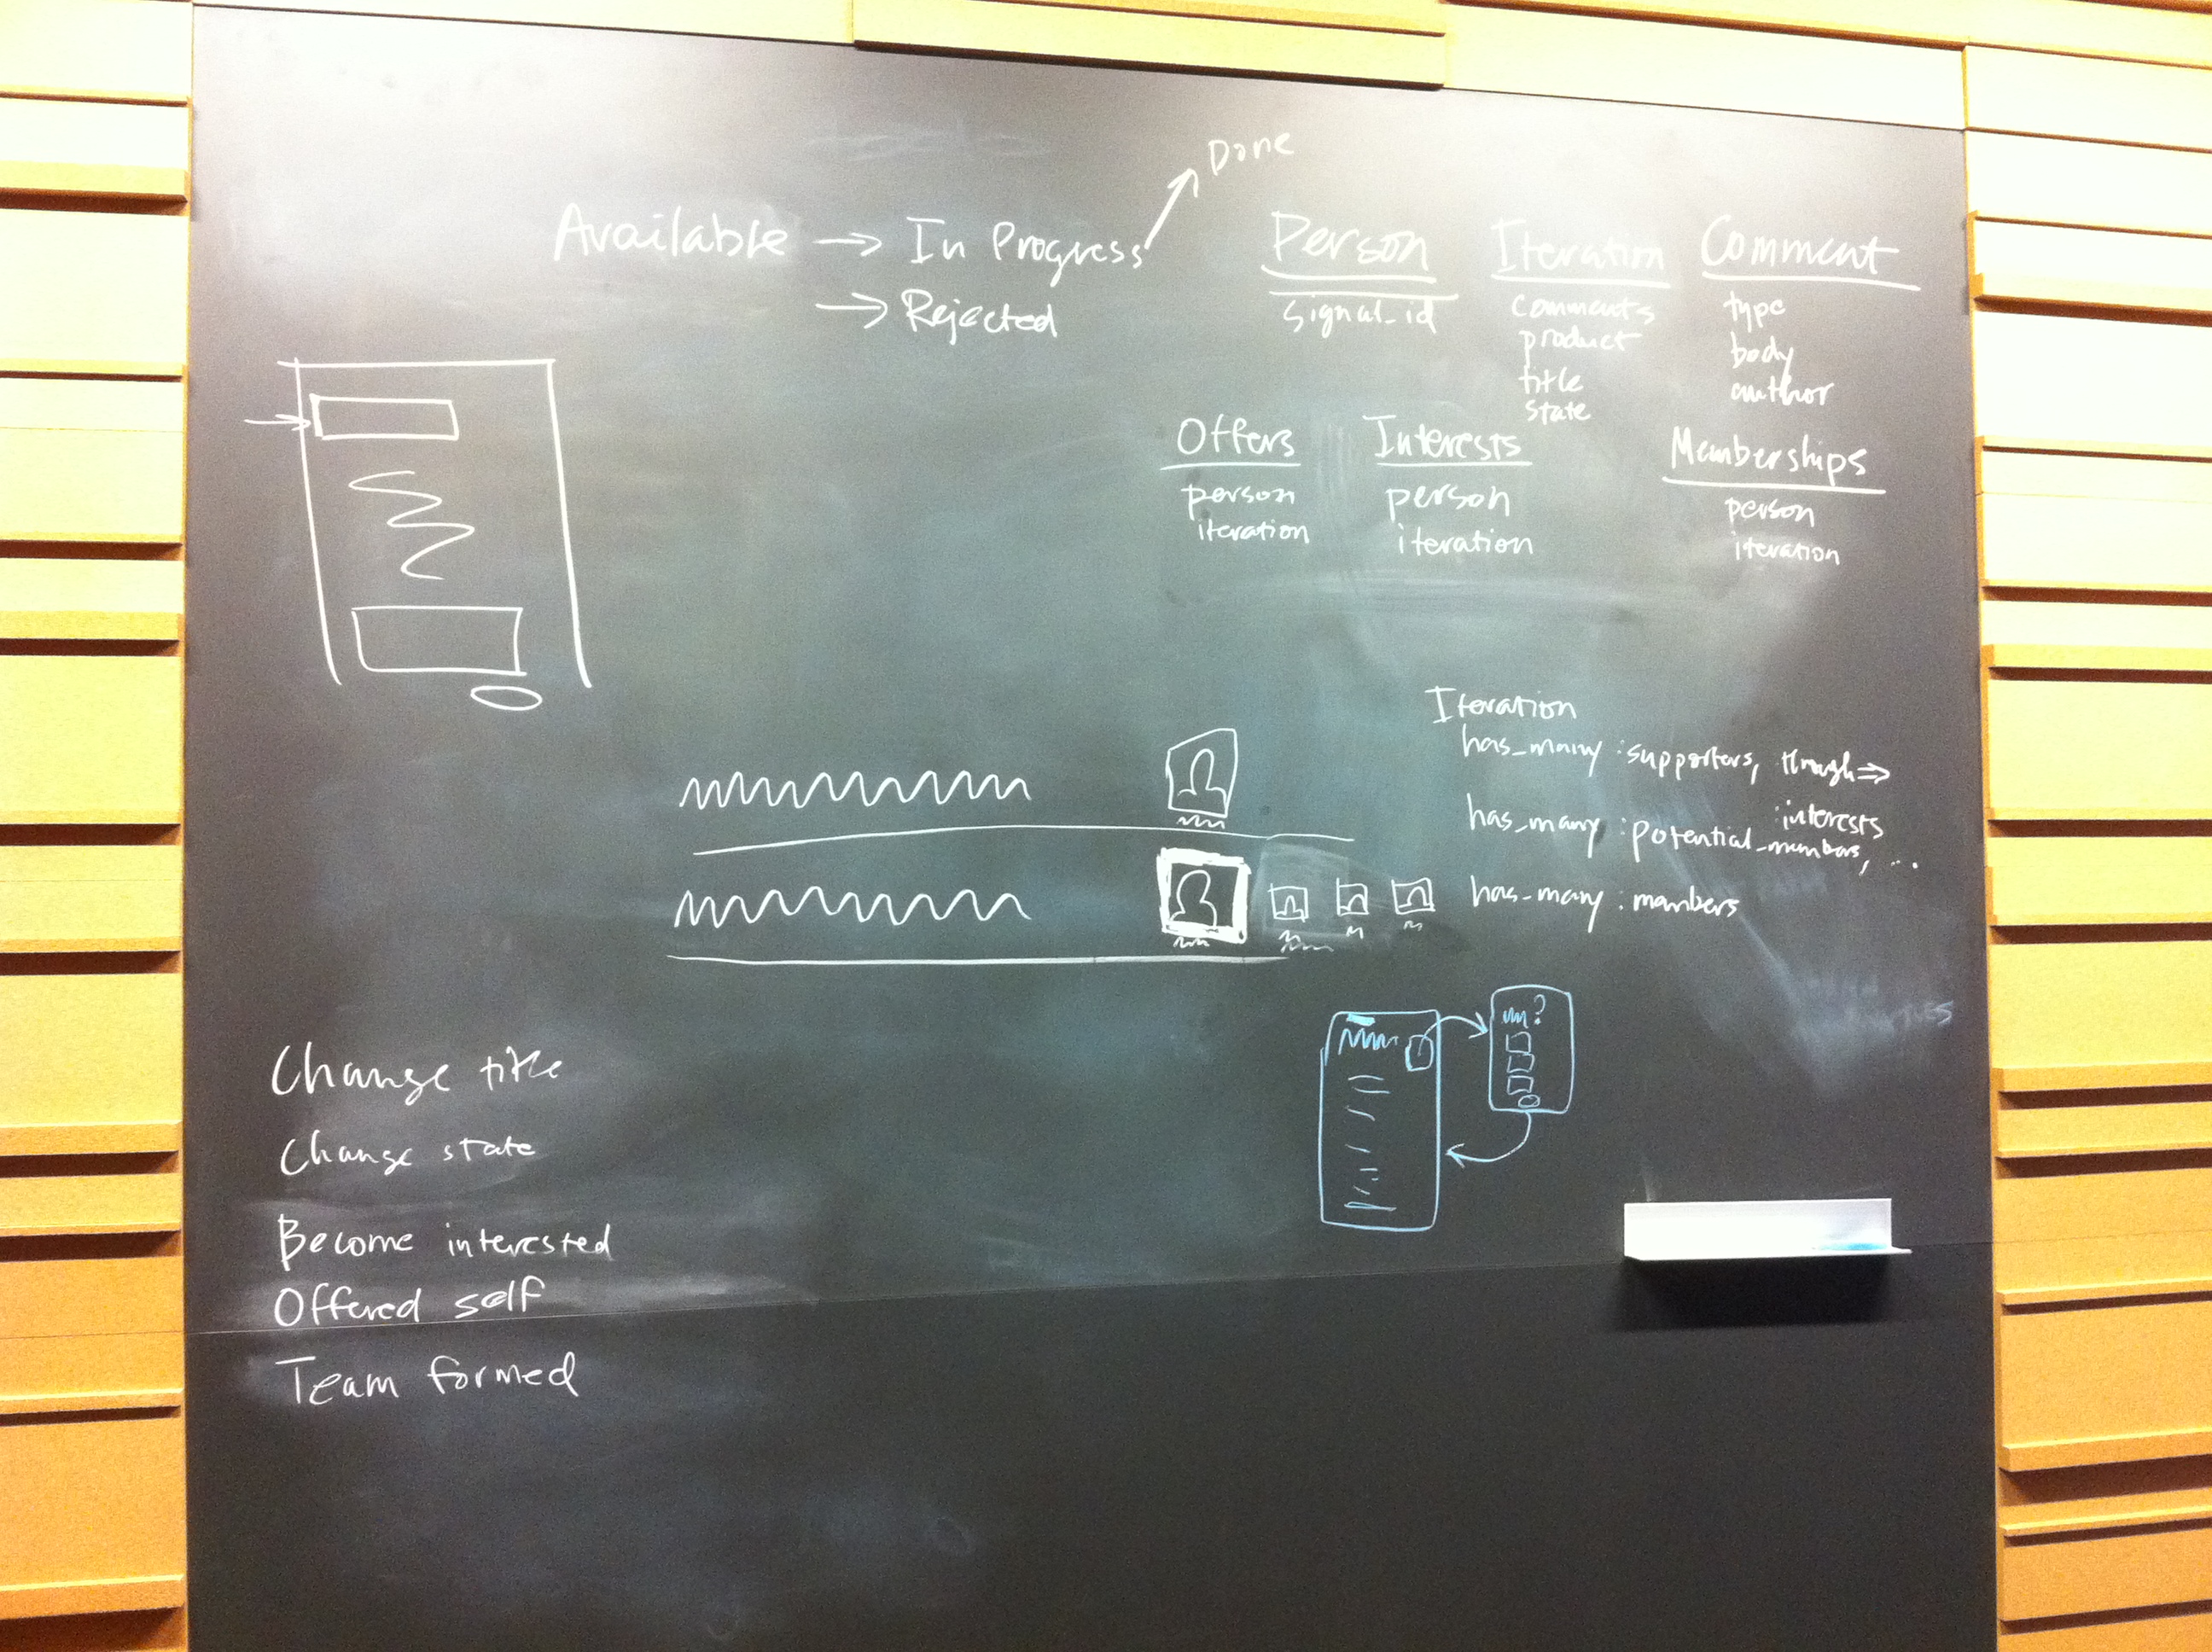 Done
Available → In Progress
→ Rejected
Person
signal_id
Iteration
comments
product
title
state
Comment
type
body
author
Offers
person
iteration
Interests
person
iteration
Memberships
person
iteration
Iteration
has_many :supporters, through ⇒
:interests
has_many :potential_members, ...
has_many :members
?
Change title
Change state
Become interested
Offered self
Team formed